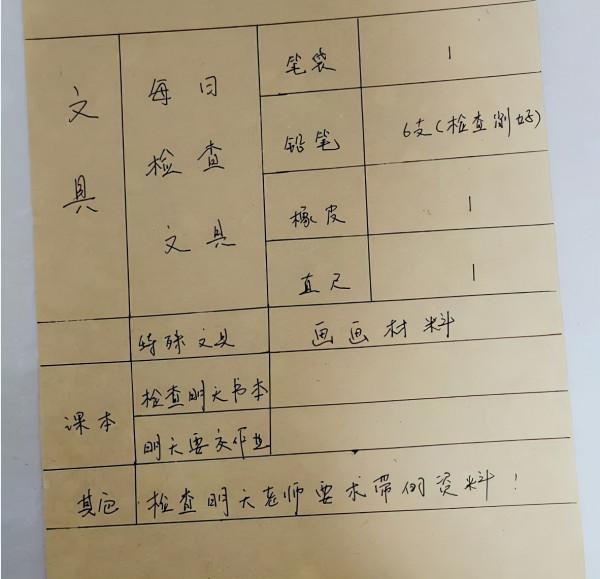 文具 每日检查文具 笔袋 1
铅笔 6支(检查削好)
橡皮 1
直尺 1
特殊文具 画画材料
课本 检查明天书本
明天要交作业
其它 检查明天老师要求带的资料!